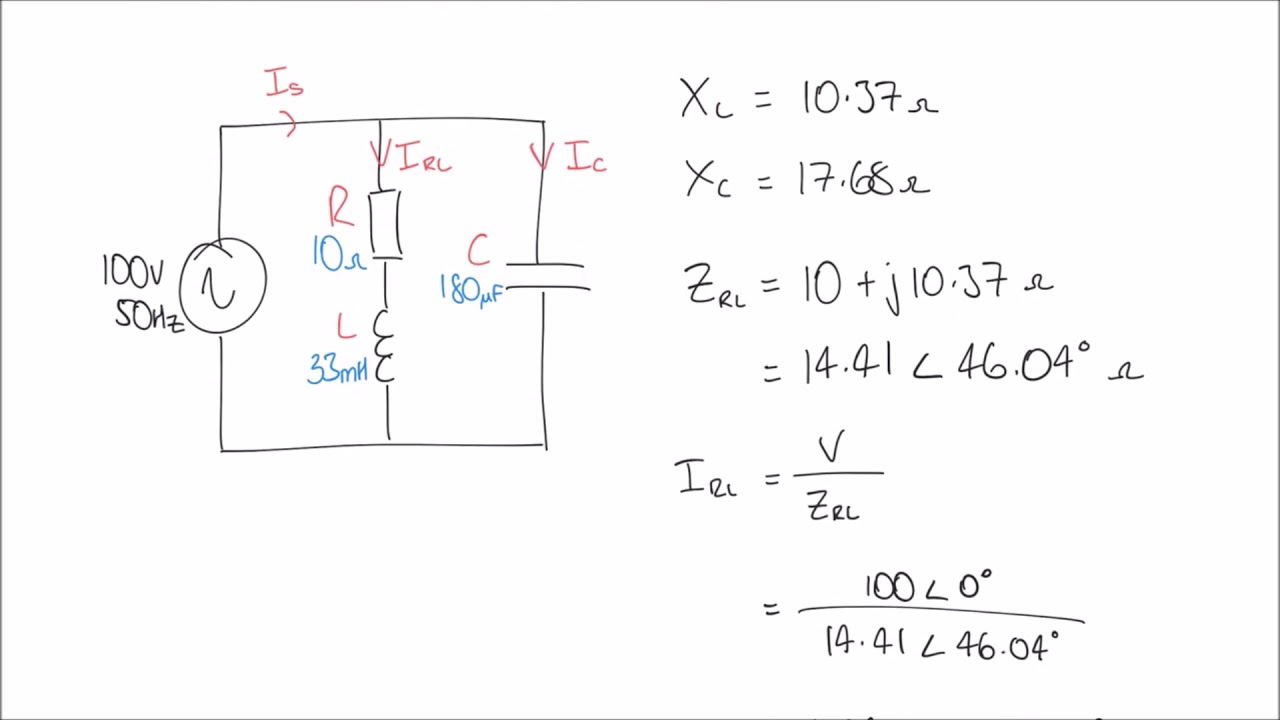 I_S
I_RL
I_C
R
10Ω
C
100V
50Hz
180μF
L
33mH
X_L = 10.37Ω
X_C = 17.68Ω
Z_RL = 10 + j10.37 Ω
= 14.41 ∠ 46.04° Ω
I_RL = V / Z_RL
= 100 ∠ 0° / 14.41 ∠ 46.04°